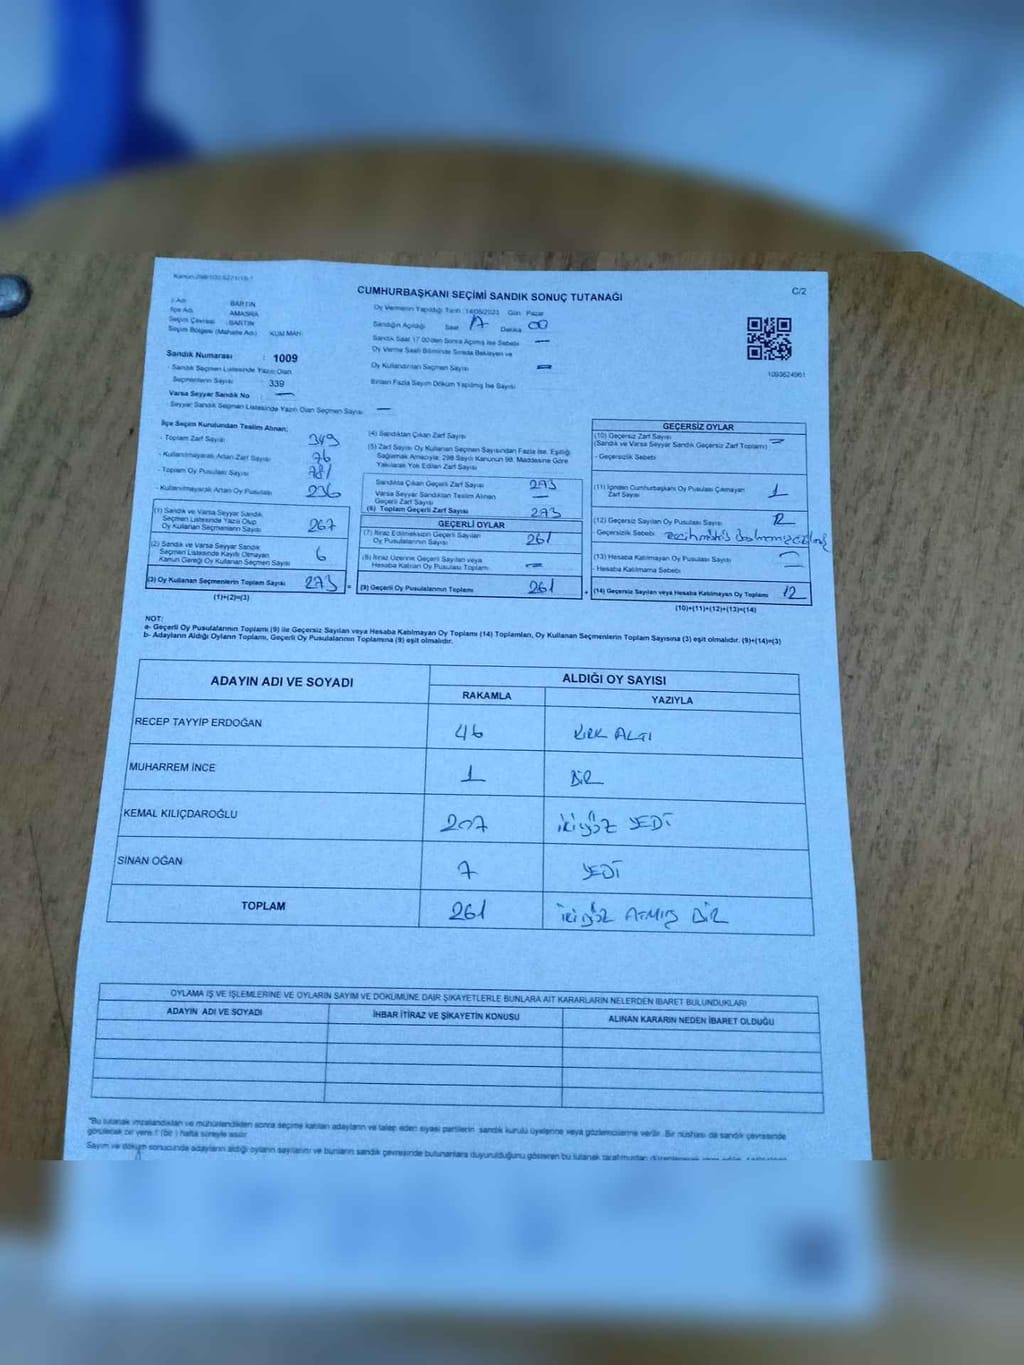 CUMHURBAŞKANI SEÇİMİ SANDIK SONUÇ TUTANAĞI
C/2
İli Adı BARTIN
İlçe Adı AMASRA
Seçim Çevresi BARTIN
Seçim Bölgesi (Mahalle Adı) KUM MAH.
Sandık Numarası : 1009
Sandık Seçmen Listesinde Yazılı Olan
Seçmenlerin Sayısı : 339
Varsa Seyyar Sandık No —
Seyyar Sandık Seçmen Listesinde Yazılı Olan Seçmen Sayısı —
Oy Vermenin Yapıldığı Tarih :14/05/2023 Gün : Pazar
Sandığın Açıldığı Saat Dakika 00
Sandık Saat 17.00'den Sonra Açılmış İse Sebebi —
Oy Verme Saati Bitiminde Sırada Bekleyen ve
Oy Kullandırılan Seçmen Sayısı —
Birden Fazla Sayım Döküm Yapılmış İse Sayısı
1093624961
İlçe Seçim Kurulundan Teslim Alınan;
- Toplam Zarf Sayısı 349
- Kullanılmayarak Artan Zarf Sayısı 76
- Toplam Oy Pusulası Sayısı
- Kullanılmayarak Artan Oy Pusulası
(1) Sandık ve Varsa Seyyar Sandık
Seçmen Listesinde Yazılı Olup
Oy Kullanan Seçmenlerin Sayısı 267
(2) Sandık ve Varsa Seyyar Sandık
Seçmen Listesinde Kayıtlı Olmayan
Kanun Gereği Oy Kullanan Seçmen Sayısı 6
(3) Oy Kullanan Seçmenlerin Toplam Sayısı 273
(1)+(2)=(3)
(4) Sandıktan Çıkan Zarf Sayısı
(5) Zarf Sayısı Oy Kullanan Seçmen Sayısından Fazla İse, Eşitliği
Sağlamak Amacıyla; 298 Sayılı Kanunun 98. Maddesine Göre
Yakılarak Yok Edilen Zarf Sayısı
Sandıkta Çıkan Geçerli Zarf Sayısı 273
Varsa Seyyar Sandıktan Teslim Alınan
Geçerli Zarf Sayısı —
(6) Toplam Geçerli Zarf Sayısı 273
GEÇERLİ OYLAR
(7) İtiraz Edilmeksizin Geçerli Sayılan
Oy Pusulalarının Sayısı 261
(8) İtiraz Üzerine Geçerli Sayılan veya
Hesaba Katılan Oy Pusulaları Toplamı —
(9) Geçerli Oy Pusulalarının Toplamı 261
GEÇERSİZ OYLAR
(10) Geçersiz Zarf Sayısı
(Sandık ve Varsa Seyyar Sandık Geçersiz Zarf Toplamı) —
- Geçersizlik Sebebi
(11) İçinden Cumhurbaşkanı Oy Pusulası Çıkmayan
Zarf Sayısı 1
(12) Geçersiz Sayılan Oy Pusulası Sayısı
- Geçersizlik Sebebi
(13) Hesaba Katılmayan Oy Pusulası Sayısı —
- Hesaba Katılmama Sebebi —
(14) Geçersiz Sayılan veya Hesaba Katılmayan Oy Toplamı 12
(10)+(11)+(12)+(13)=(14)
NOT:
a- Geçerli Oy Pusulalarının Toplamı (9) ile Geçersiz Sayılan veya Hesaba Katılmayan Oy Toplamı (14) Toplamları, Oy Kullanan Seçmenlerin Toplam Sayısına (3) eşit olmalıdır. (9)+(14)=(3)
b- Adayların Aldığı Oyların Toplamı, Geçerli Oy Pusulalarının Toplamına (9) eşit olmalıdır.
ADAYIN ADI VE SOYADI ALDIĞI OY SAYISI
RAKAMLA YAZIYLA
RECEP TAYYİP ERDOĞAN 46 KIRK ALTI
MUHARREM İNCE 1 BİR
KEMAL KILIÇDAROĞLU 207 İKİYÜZ YEDİ
SİNAN OĞAN 7 YEDİ
TOPLAM 261 İKİYÜZ ATMIŞ BİR
OYLAMA İŞ VE İŞLEMLERİNE VE OYLARIN SAYIM VE DÖKÜMÜNE DAİR ŞİKAYETLERLE BUNLARA AİT KARARLARIN NELERDEN İBARET BULUNDUKLARI
ADAYIN ADI VE SOYADI İHBAR İTİRAZ VE ŞİKAYETİN KONUSU ALINAN KARARIN NEDEN İBARET OLDUĞU
"Bu tutanak imzalandıktan ve mühürlendikten sonra seçime katılan adayların ve talep eden siyasi partilerin sandık kurulu üyelerine veya gözlemcilerine verilir. Bir nüshası da sandık çevresinde
görülecek bir yere 1 (bir) hafta süreyle asılır.
Sayım ve döküm sonucunda adayların aldığı oyların sayılarını ve bunların sandık çevresinde bulunanlara duyurulduğunu gösteren bu tutanak